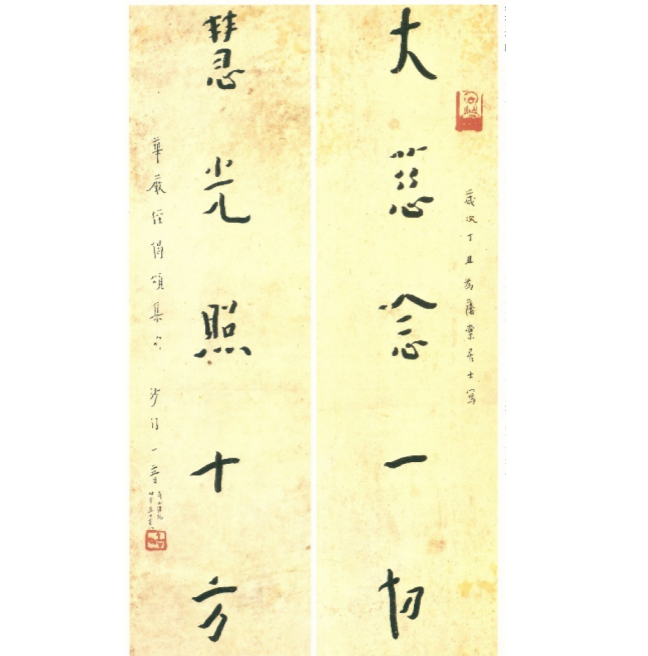 歲次丁丑為廕棠居士寫
大慈念一切
慧光照十方
華嚴經偈頌集句 沙門一音